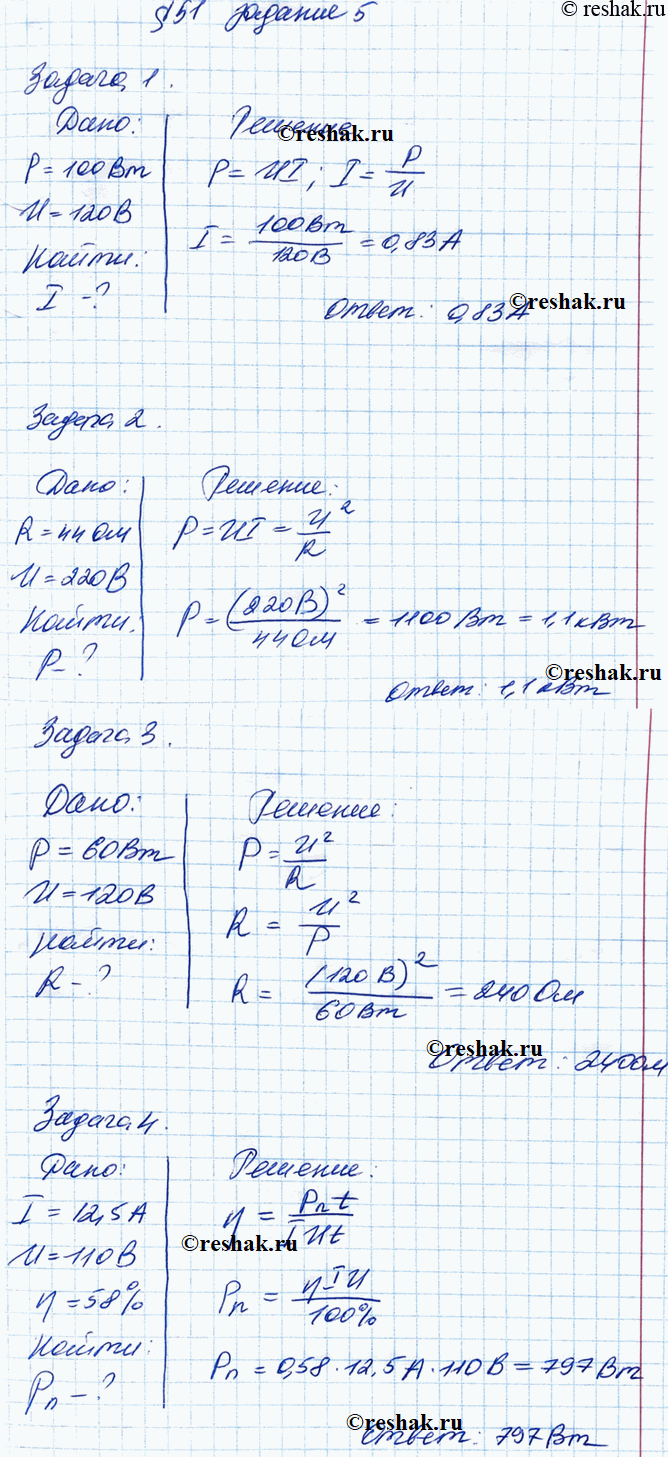 © reshak.ru
§51 задание 5
Задача 1.
Дано:
P = 100 Вт
U = 120 В
Найти:
I - ?
Решение
©reshak.ru
P = UI; I = P/U
I = 100 Вт / 120 В = 0,83 А
Ответ: 0,83 А
©reshak.ru
Задача 2.
Дано:
R = 44 Ом
U = 220 В
Найти:
P - ?
Решение:
P = UI = U²/R
P = (220 В)² / 44 Ом = 1100 Вт = 1,1 кВт
©reshak.ru
Ответ: 1,1 кВт
Задача 3.
Дано:
P = 60 Вт
U = 120 В
Найти:
R - ?
Решение:
P = U²/R
R = U²/P
R = (120 В)² / 60 Вт = 240 Ом
©reshak.ru
Ответ: 240 Ом
Задача 4.
Дано:
I = 12,5 А
U = 110 В
η = 58%
Найти:
Pп - ?
Решение:
η = Pп t / IUt
©reshak.ru
Pп = ηIU / 100%
Pп = 0,58 · 12,5 А · 110 В = 797 Вт
©reshak.ru
Ответ: 797 Вт